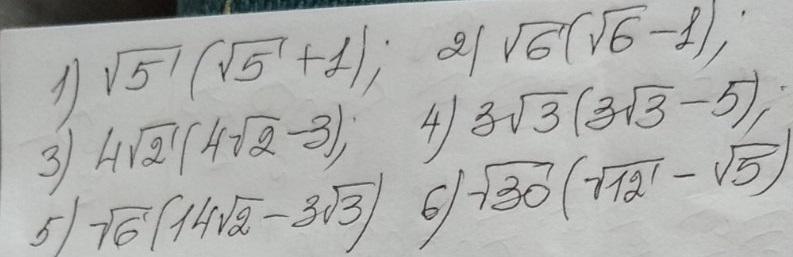 1) √5 (√5 + 1); 2) √6 (√6 - 1);
3) 4√2 (4√2 - 3); 4) 3√3 (3√3 - 5);
5) √6 (14√2 - 3√3) 6) √30 (√12 - √5)